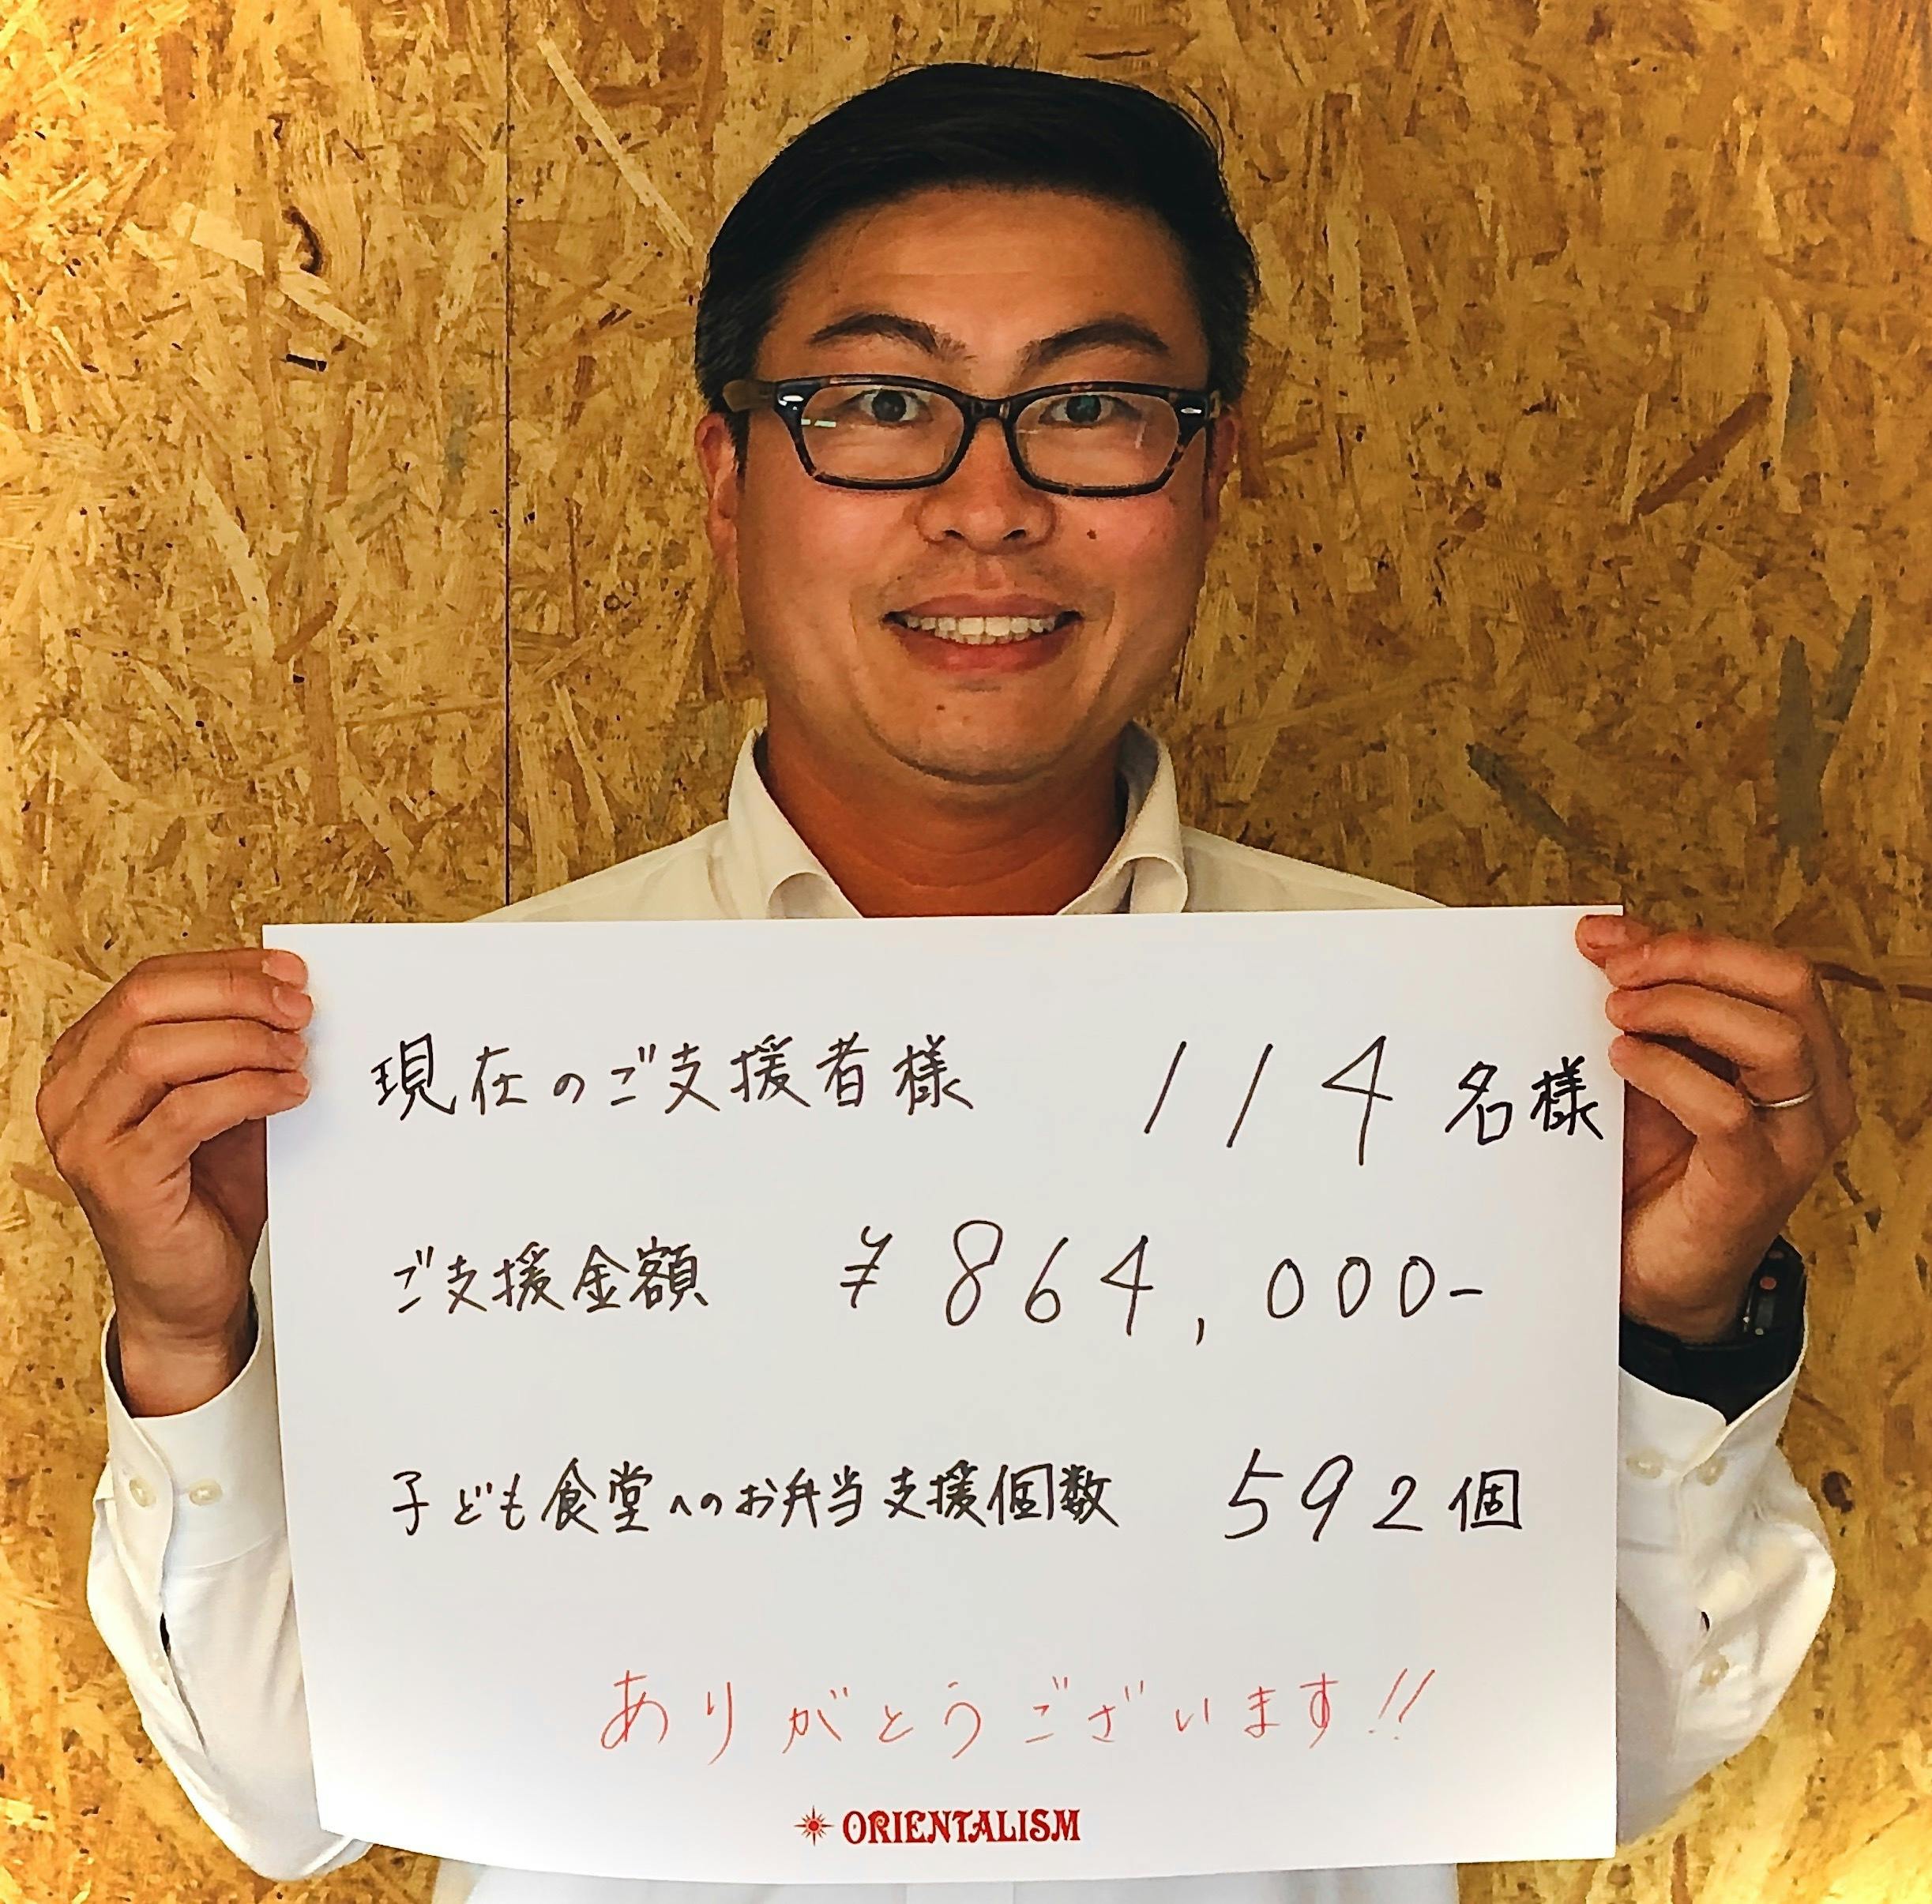 現在のご支援者様 114名様
ご支援金額 ¥864,000-
子ども食堂へのお弁当支援個数 592個
ありがとうございます!!
ORIENTALISM